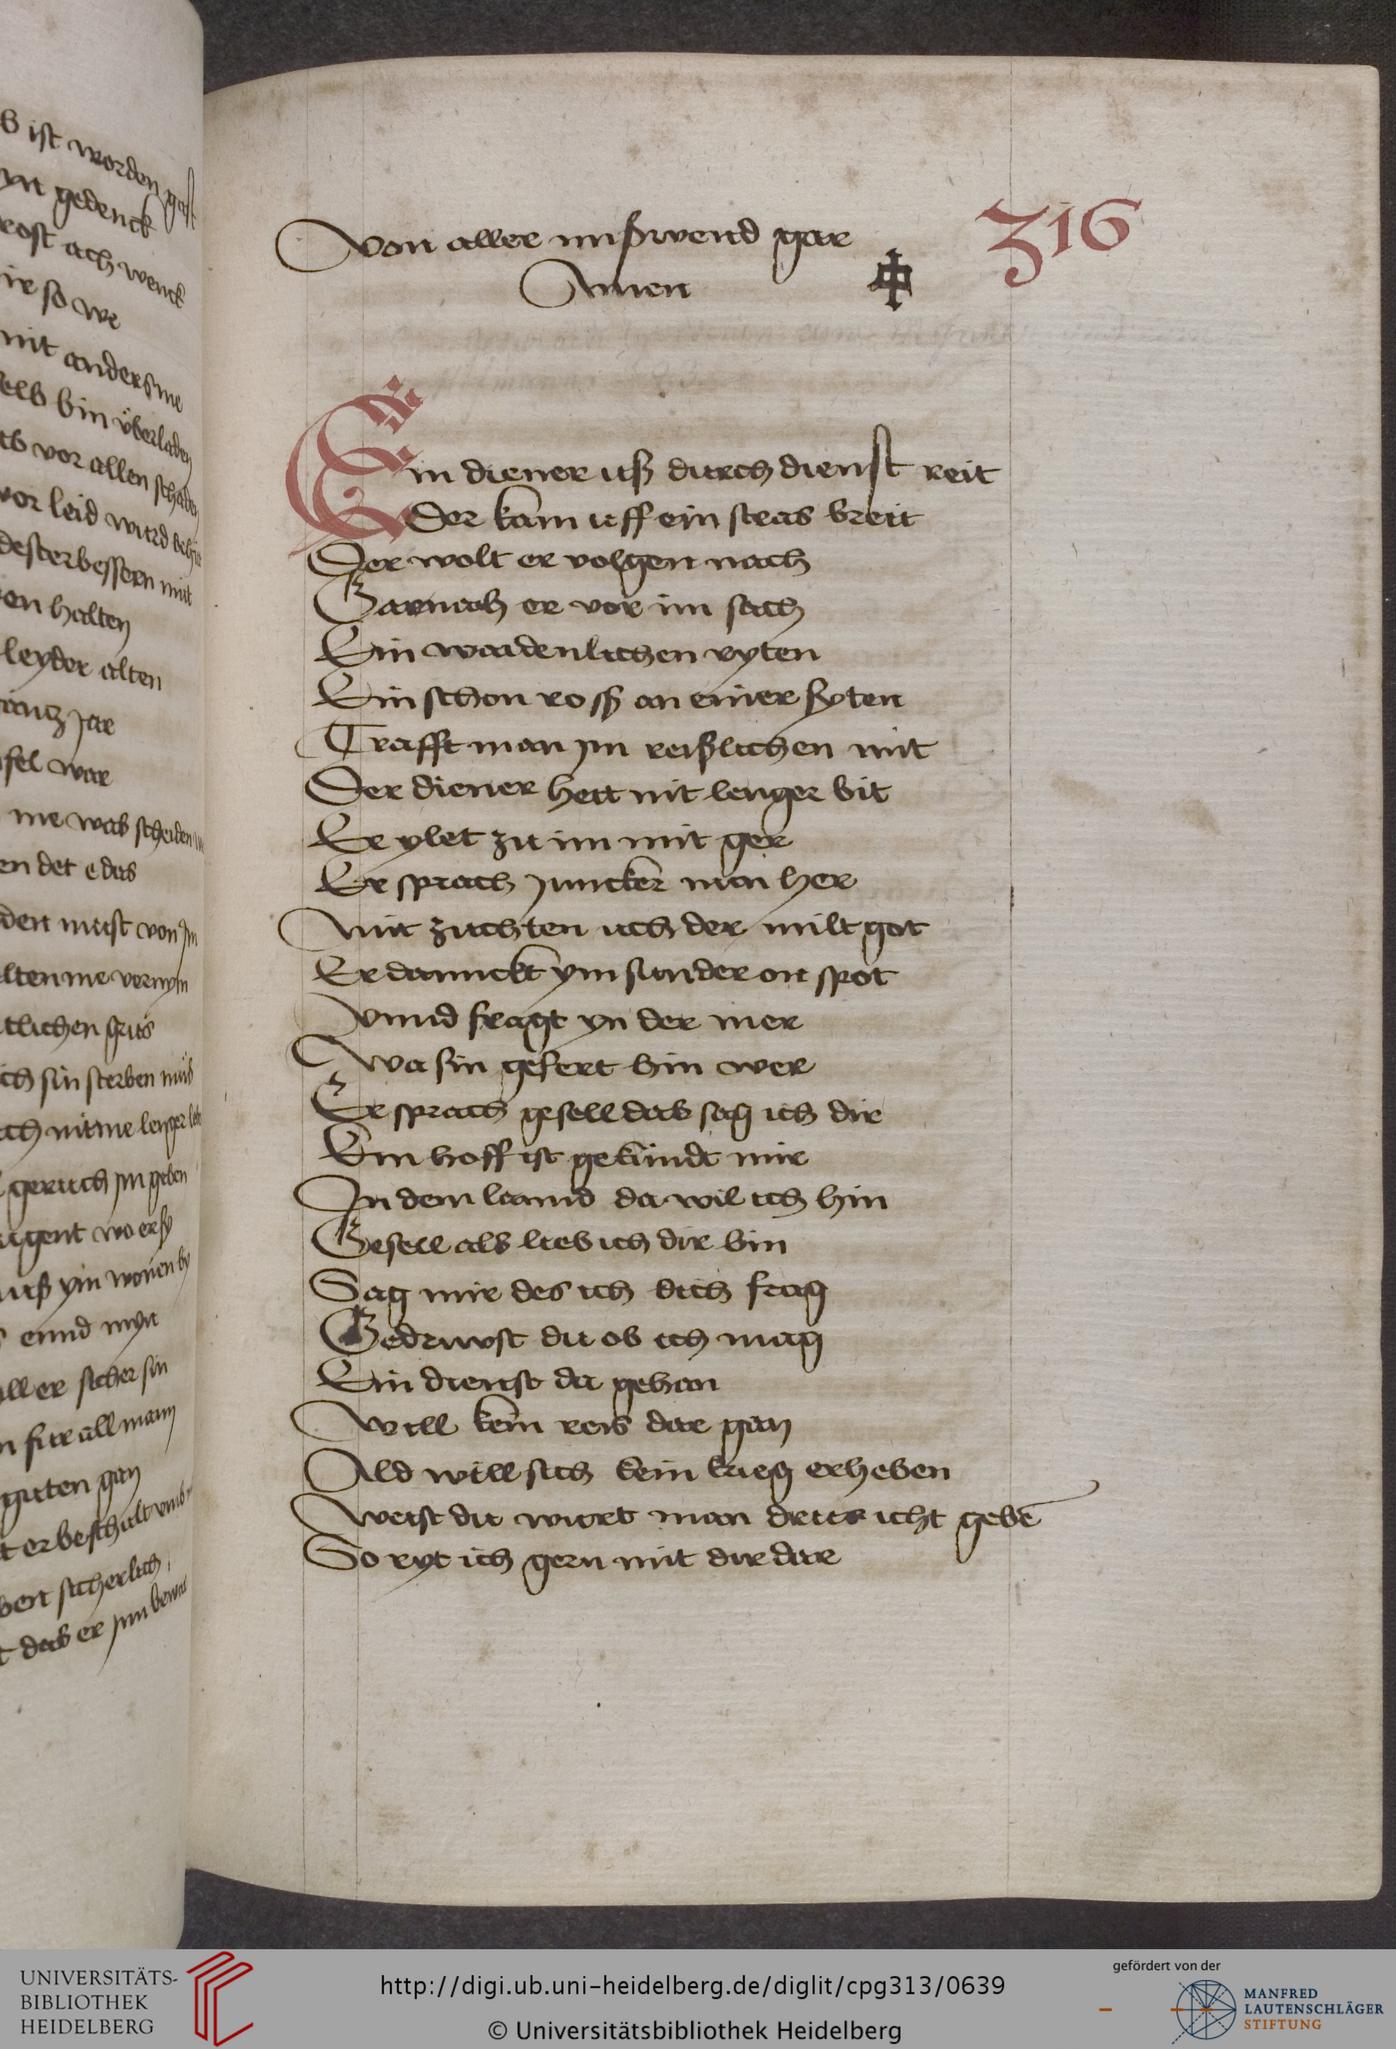 Von aller missweͤnd gar
Amen
316
Ein diener uß durch dienst reit
Der kam uff ein stras breit
Der wolt er volgen nach
Garnach er vor im sach
Ein waidenlichen ryten
Ein schon roß an einer syten
Trafft man jm reißlichen mit
Der diener hett nit lenger bit
Er ylet zu im mit ger
Er sprach juncker min her
Mit zuchten uch der milt got
Er dannckt ym sunder on spot
Vnnd fragt yn der mer
Wa sin gefert hin wer
Er sprach gesell das sag ich dir
Ein hoff ist gekündt mir
In dem lannd da wil ich hin
Gesell als lieb ich dir bin
Sag mir des ich dich frag
Gedruwst du ob ich mag
Ein dienst da gehan
Will kein reis dar gan
Ald will sich kein krieg erheben
Weist du wurt man druk icht gebē
So ryt ich gern mit dir dar
ist worden gast
gedenck
ach wenck
so we
nit anders me
bin überladen
vor allen schaden
vor leid wurd
desterbessern mut
halten
leyder alten
gantz jar
war
me was scheiden
det e das
must von jm
me vernym
ich sin sterben mus
nit me lenger
geruch jm geben
wo er sy
uß ym wonen by
ennd myn
er sicher sin
für all mann
guten gan
er beschalt
sicherlich
das er jnn bewar
UNIVERSITÄTS-
BIBLIOTHEK
HEIDELBERG
http://digi.ub.uni-heidelberg.de/diglit/cpg313/0639
© Universitätsbibliothek Heidelberg
gefördert von der
MANFRED
LAUTENSCHLÄGER
STIFTUNG